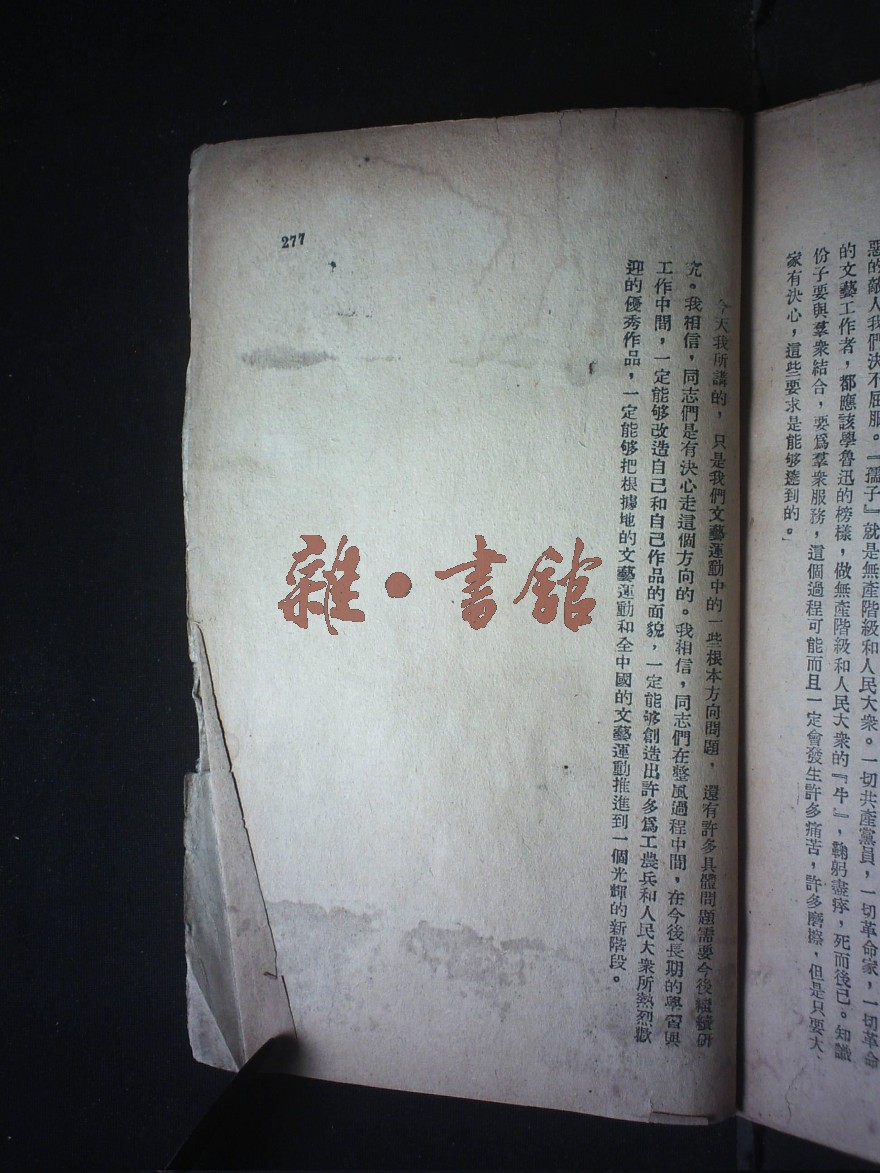 惡的敵人我們決不屈服。『孺子』就是無產階級和人民大衆。一切共產黨員，一切革命家，一切革命
的文藝工作者，都應該學魯迅的榜樣，做無產階級和人民大衆的『牛』，鞠躬盡瘁，死而後已。知識
份子要與羣衆結合，要爲羣衆服務，這個過程可能而且一定會發生許多痛苦，許多磨擦，但是只要大
家有決心，這些要求是能够達到的。
今天我所講的，只是我們文藝運動中的一些根本方向問題，還有許多具體問題需要今後繼續研
究。我相信，同志們是有決心走這個方向的。我相信，同志們在整風過程中間，在今後長期的學習與
工作中間，一定能够改造自己和自己作品的面貌，一定能够創造出許多爲工農兵和人民大衆所熱烈歡
迎的優秀作品，一定能够把根據地的文藝運動和全中國的文藝運動推進到一個光輝的新階段。
277
雜·書館